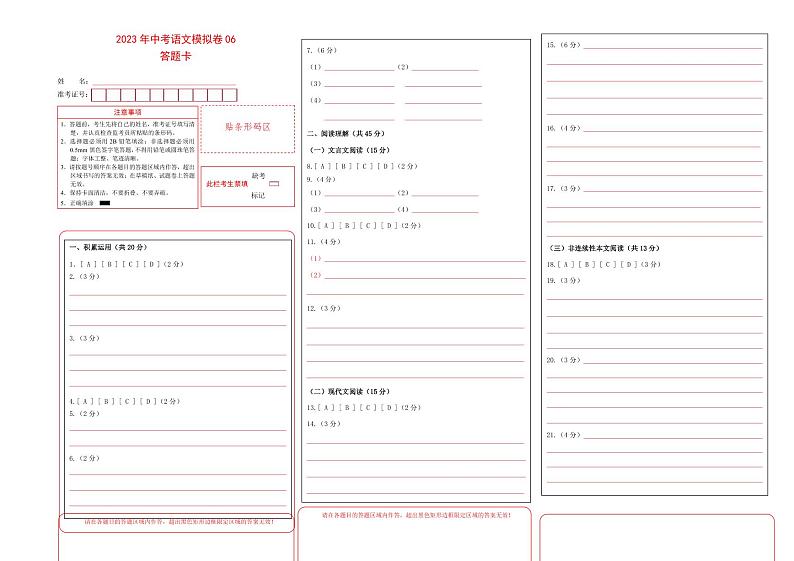 2023 年中考语文模拟卷 06
答题卡
姓　　名：
准考证号：
注意事项
1．答题前，考生先将自己的姓名，准考证号填写清
楚，并认真检查监考员所粘贴的条形码。
2．选择题必须用 2B 铅笔填涂；非选择题必须用
0.5mm 黑色签字笔答题，不得用铅笔或圆珠笔答
题；字体工整、笔迹清晰。
3．请按题号顺序在各题目的答题区域内作答，超出
区域书写的答案无效；在草稿纸、试题卷上答题
无效。
4．保持卡面清洁，不要折叠、不要弄破。
5．正确填涂
贴条形码区
此栏考生禁填
缺考
标记
一、积累运用（共 20 分）
1．[ A ] [ B ] [ C ] [ D ]（2 分）
2.（3 分）
3.（3 分）
4.[ A ] [ B ] [ C ] [ D ]（2 分）
5.（2 分）
6.（2 分）
请在各题目的答题区域内作答，超出黑色矩形边框限定区域的答案无效！
7.（6 分）
（1）（2）
（3）
（4）
二、阅读理解（共 45 分）
（一）文言文阅读（15 分）
8.[ A ] [ B ] [ C ] [ D ]（2 分）
9.（4 分）
（1）（2）
（3）（4）
10.[ A ] [ B ] [ C ] [ D ]（2 分）
11.（4 分）
（1）
（2）
12.（3 分）
（二）现代文阅读（15 分）
13.[ A ] [ B ] [ C ] [ D ]（2 分）
14.（3 分）
请在各题目的答题区域内作答，超出黑色矩形边框限定区域的答案无效！
15.（6 分）
16.（4 分）
17.（3 分）
（三）非连续性本文阅读（共 13 分）
18.[ A ] [ B ] [ C ] [ D ]（3 分）
19.（3 分）
20.（3 分）
21.（4 分）